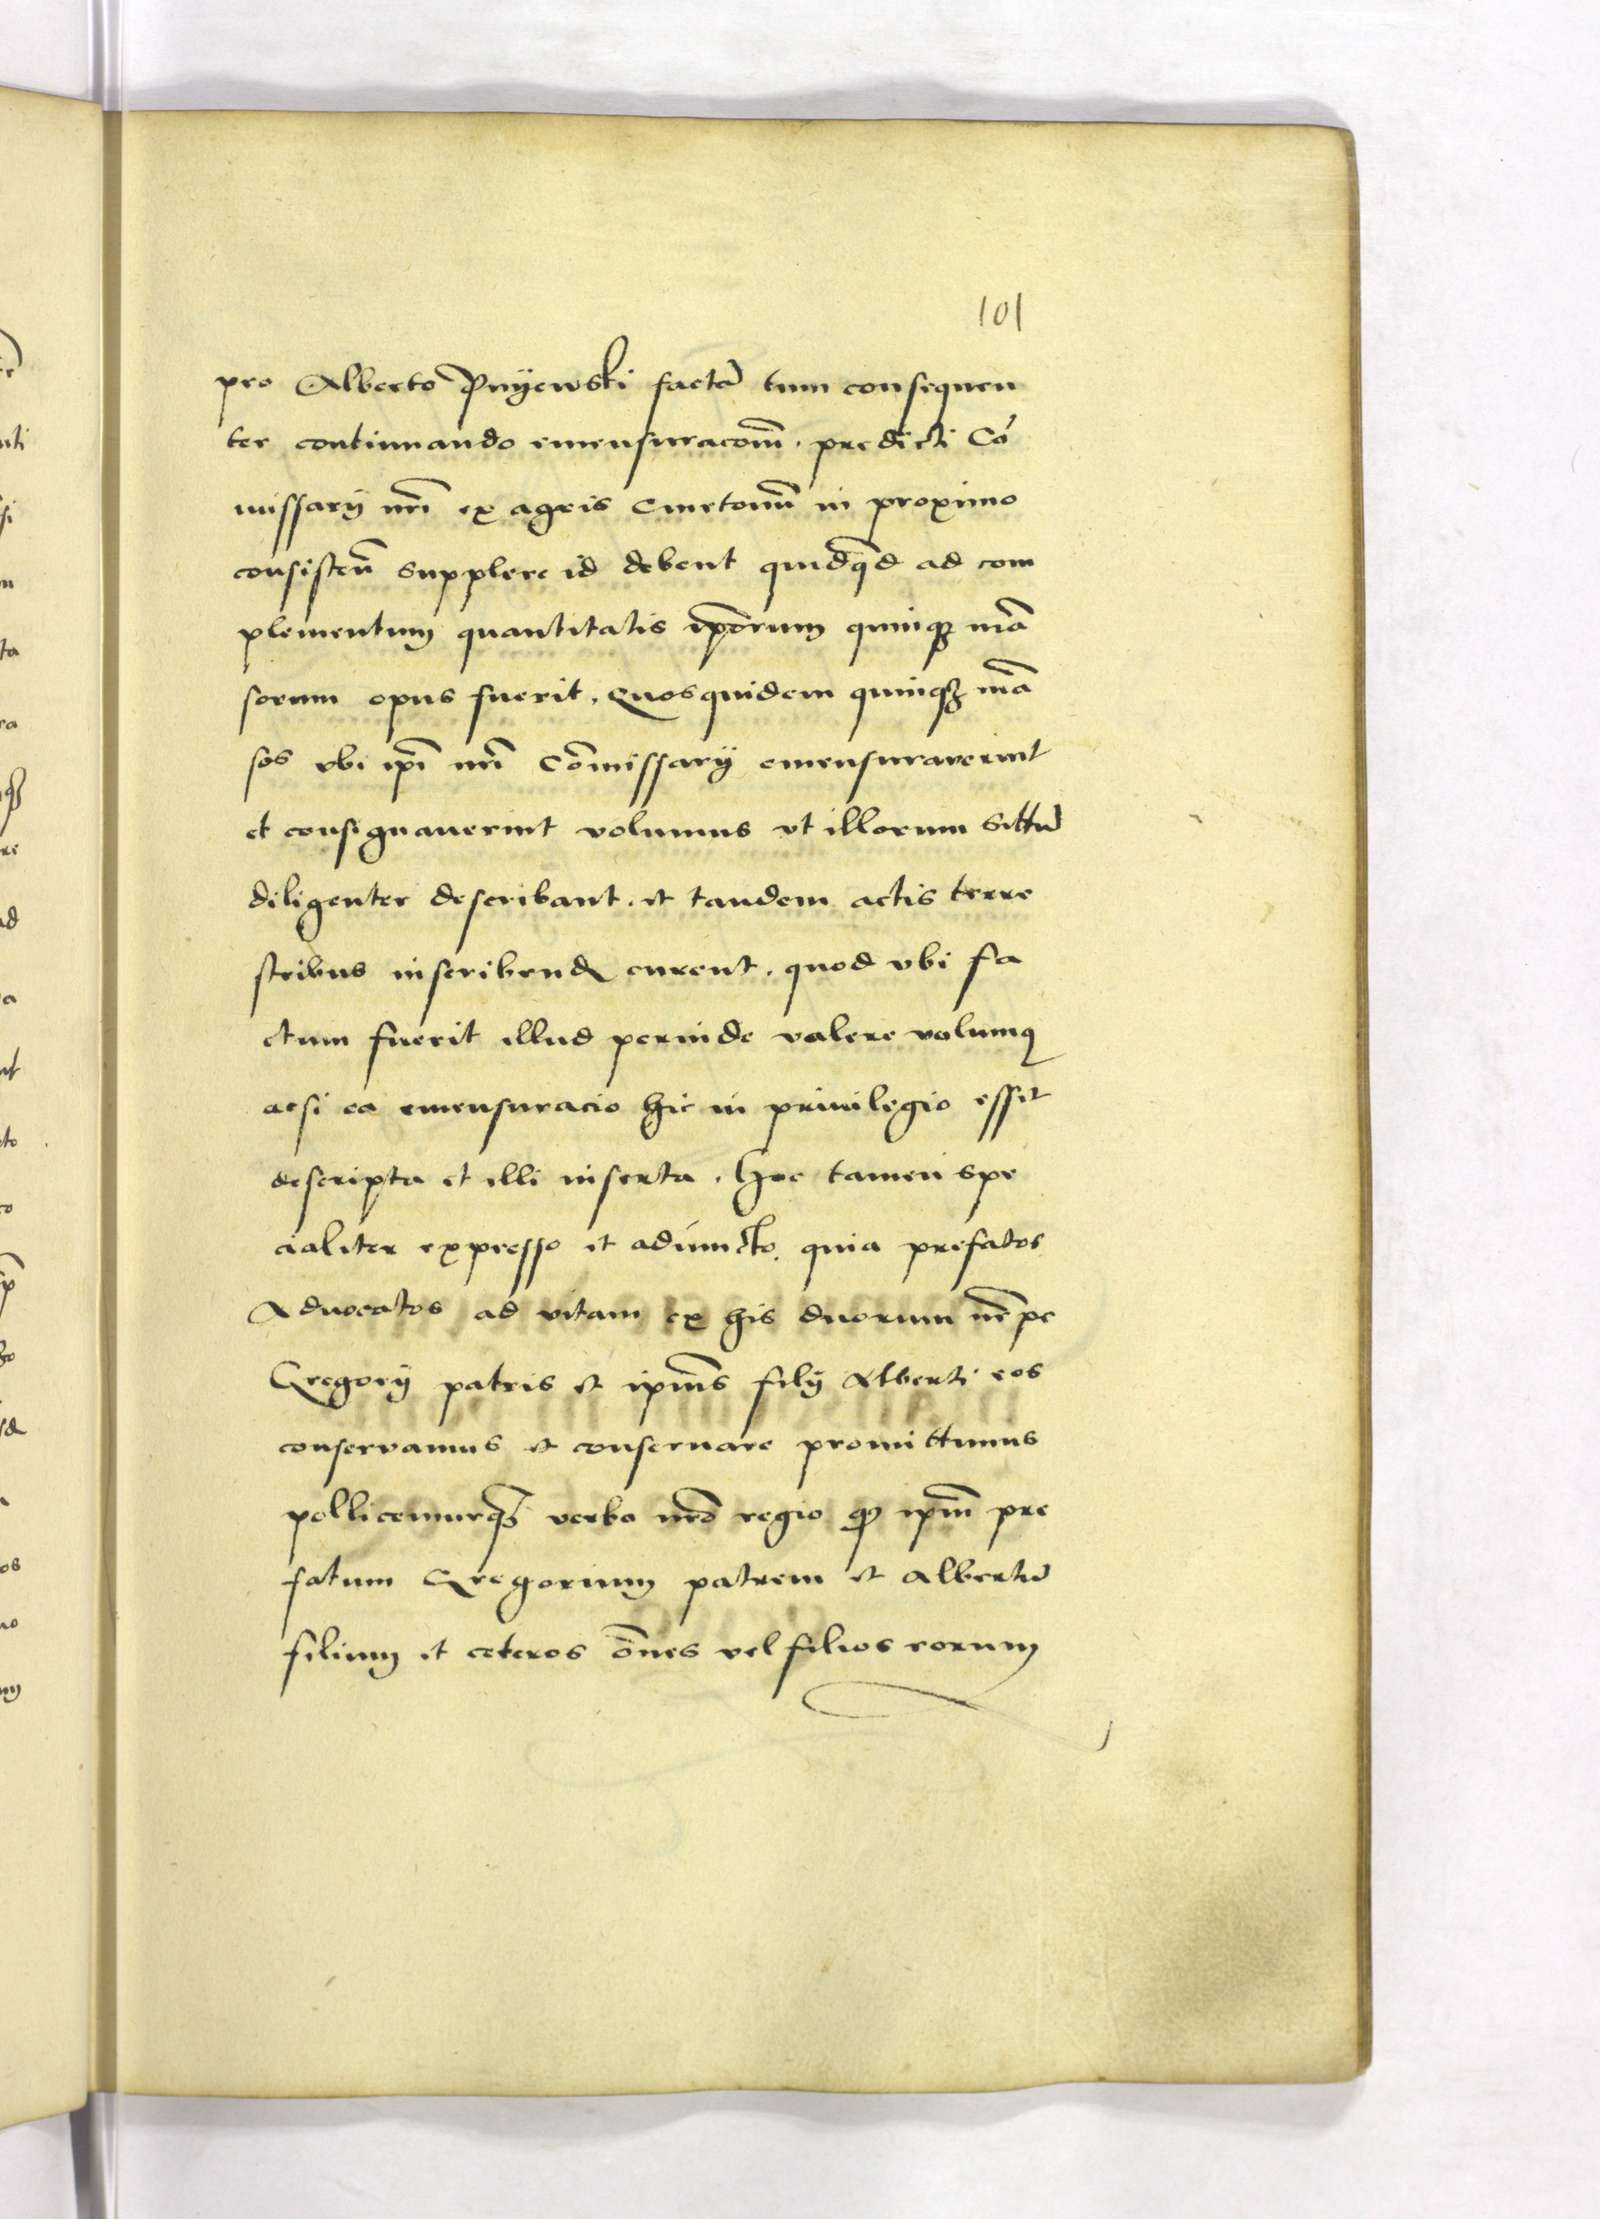 101
pro Alberto Pnÿewski factã tum consequen
ter continuando emensuracom̃. predicti Cõ
missarÿ nr̃i ex agris Cmetonũ in proximo
consisteñ supplere id debent quidq̃d ad com
plementum quantitatis ip̃orum quinqȝ mã
sorum opus fuerit. Quosquidem quinqȝ mã
sos vbi ip̃i nr̃i Com̃issarÿ emensuraverint
et consignauerint volumus vt illorum Sittũ
diligenter describant. et tandem actis terre
stribus inscribend curent. quod vbi fa
ctum fuerit illud perinde valere volumꝯ
acsi ea emensuracio hic in priuilegio esset
descripta et illi inserta. Hoc tamen spe
cialiter expresso et adiuncto. quia prefatos
Aduocatos ad vitam ex his duorum nẽpe
Gregorÿ patris et ipiũs filÿ Alberti eos
conservamus et conseruare promittimus
pollicemurqȝ verbo nr̃o regio qꝫ ip̃m pre
fatum Gregorium patrem et Albertũ
filium et ceteros om̃es vel filios eorum